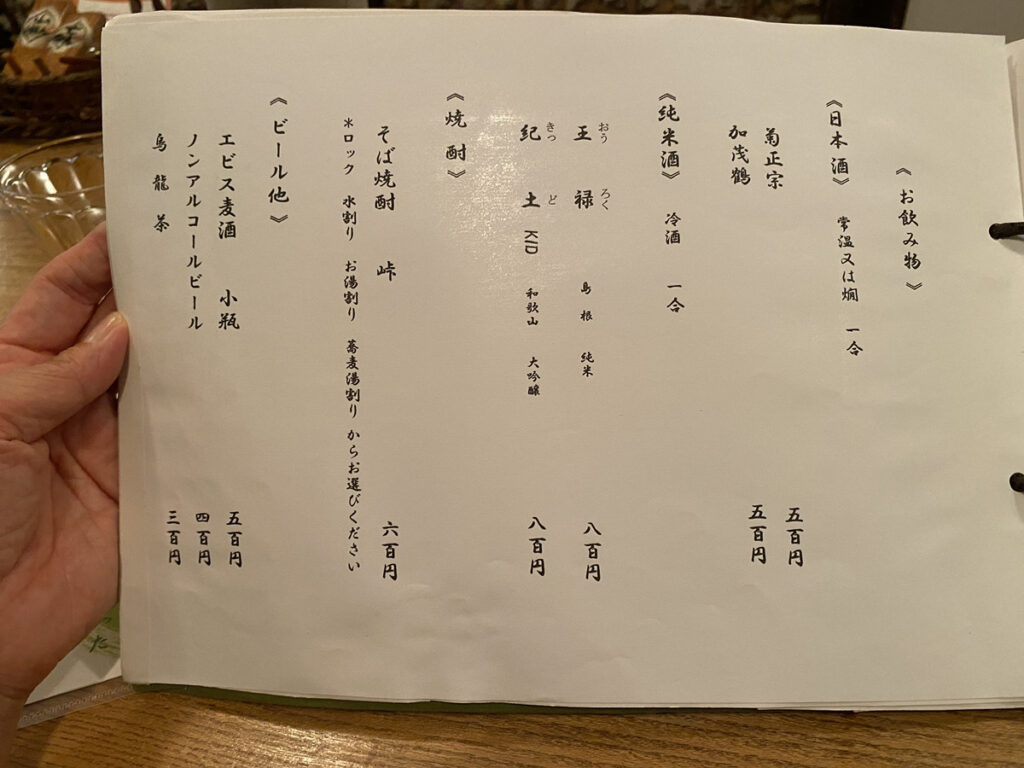 《お飲み物》
《日本酒》 常温又は燗 一合
菊正宗 五百円
加茂鶴 五百円
《純米酒》 冷酒 一合
王禄 おうろく 島根 純米 八百円
紀土 きっど KID 和歌山 大吟醸 八百円
《焼酎》
そば焼酎 峠 六百円
*ロック 水割り お湯割り 蕎麦湯割り からお選びください
《ビール他》
エビス麦酒 小瓶 五百円
ノンアルコールビール 四百円
烏龍茶 三百円